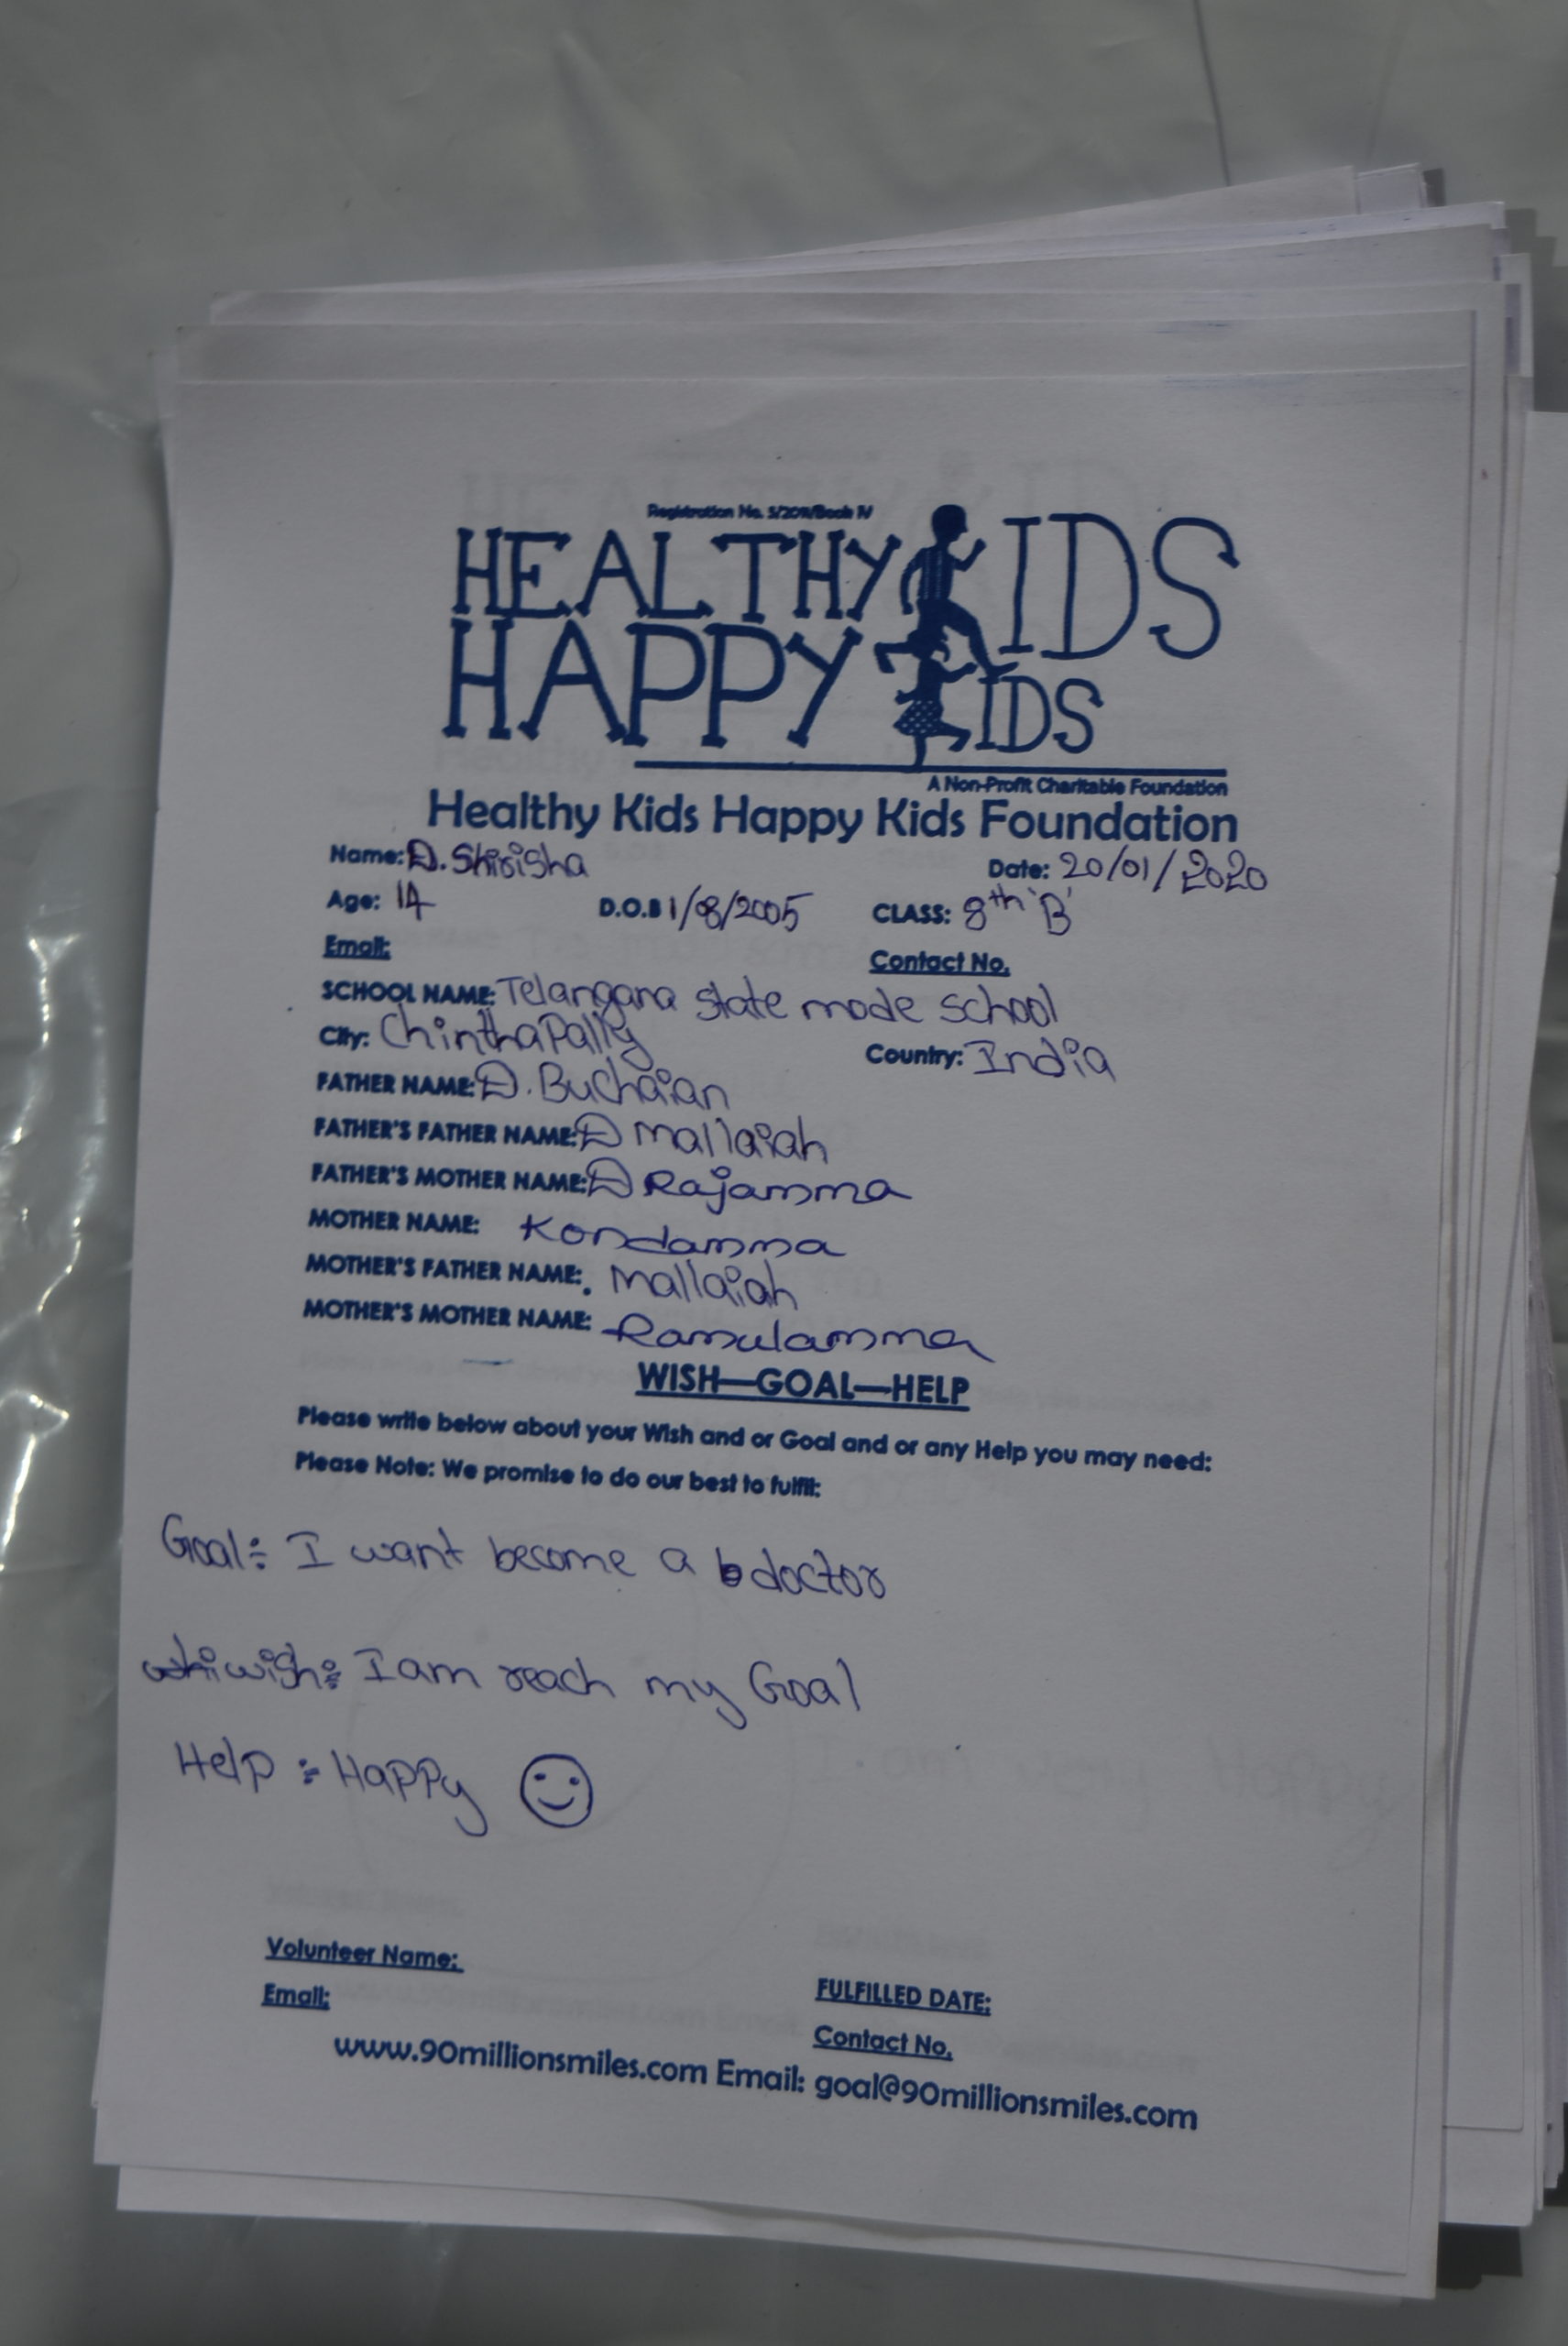 Registration No. 5/2011/Book IV
HEALTHY KIDS
HAPPY KIDS
A Non-Profit Charitable Foundation
Healthy Kids Happy Kids Foundation
Name: D. Shirisha Date: 20/01/2020
Age: 14 D.O.B 1/08/2005 CLASS: 8th 'B'
Email: Contact No.
SCHOOL NAME: Telangana state mode school
City: Chinthapally Country: India
FATHER NAME: D. Buchaian
FATHER'S FATHER NAME: D Mallaiah
FATHER'S MOTHER NAME: D Rajamma
MOTHER NAME: Kondamma
MOTHER'S FATHER NAME: Mallaiah
MOTHER'S MOTHER NAME: Ramulamma
WISH—GOAL—HELP
Please write below about your Wish and or Goal and or any Help you may need:
Please Note: We promise to do our best to fulfil:
Goal:- I want become a doctor
wish:- I am reach my Goal
Help :- Happy
Volunteer Name:
FULFILLED DATE:
Email:
Contact No.
www.90millionsmiles.com Email: goal@90millionsmiles.com